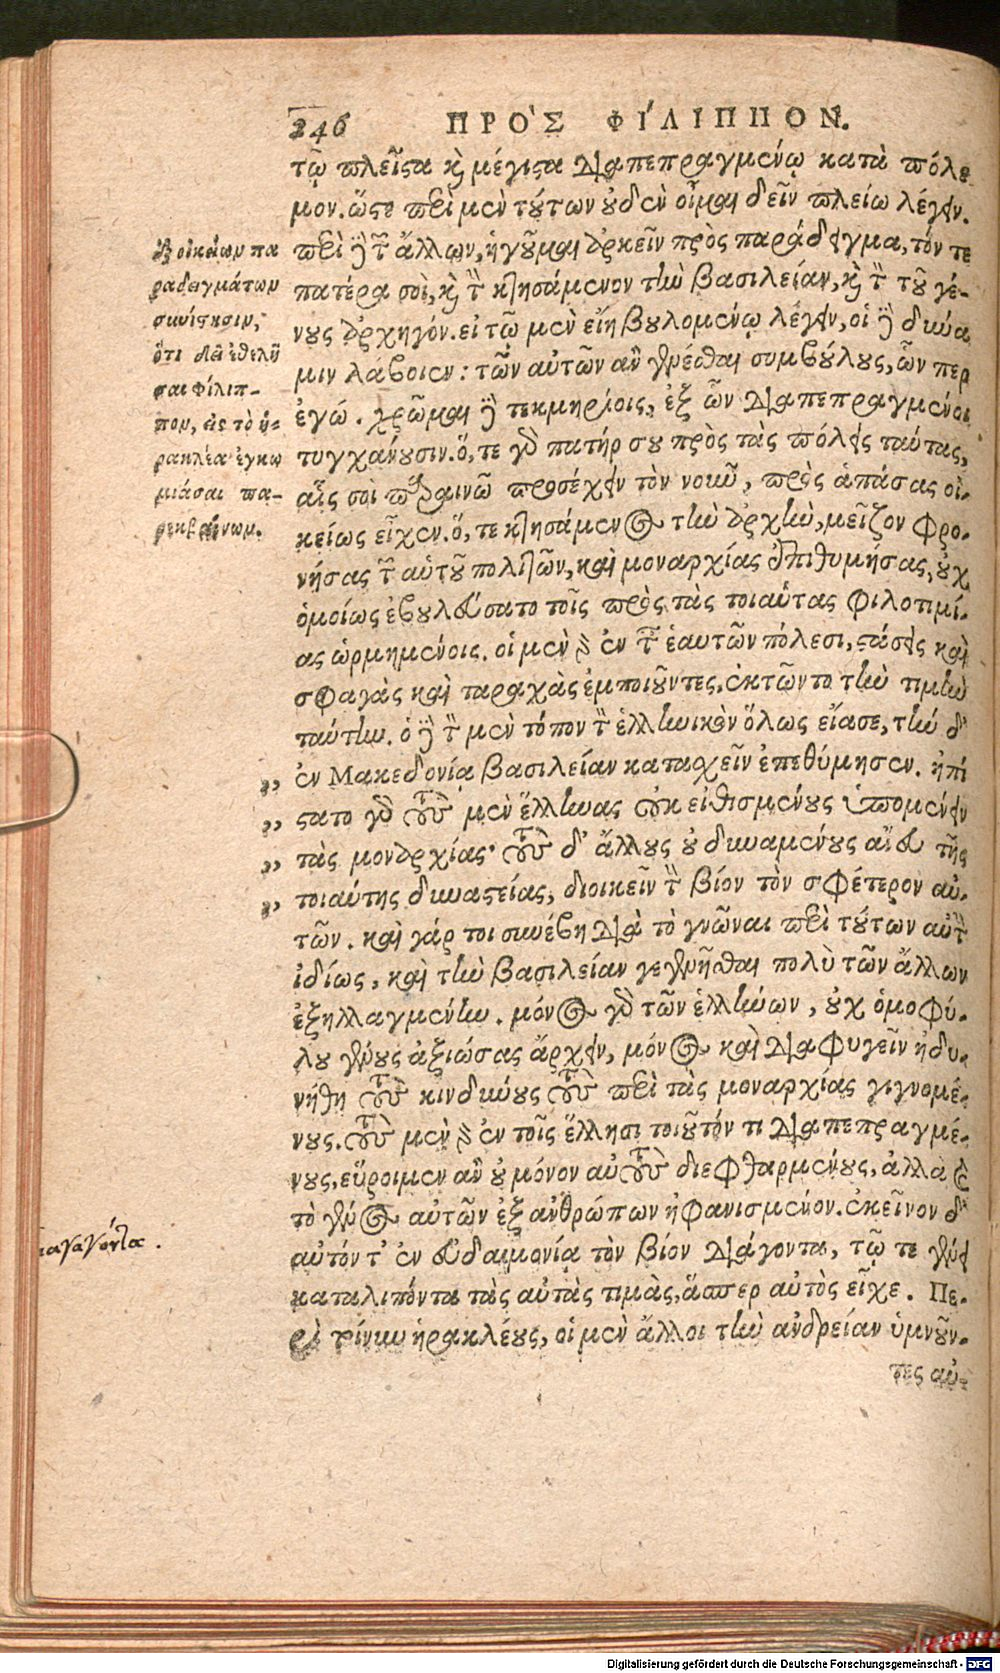 246 ΠΡΟ'Σ ΦΙ'ΛΙΠΠΟΝ.
τῷ πλεῖστα καὶ μέγιστα διαπεπραγμένῳ κατὰ πόλε
μον. ὥστε περὶ μὲν τούτων οὐδὲν οἶμαι δεῖν πλείω λέγειν.
περὶ δὲ τῶν ἄλλων, ἡγοῦμαι ἀρκεῖν πρὸς παράδειγμα, τόν τε
πατέρα σοὶ, καὶ τὸν κτησάμενον τὴν βασιλείαν, καὶ τὸν τοῦ γέ-
νους ἀρχηγόν. εἰ τῷ μὲν εἴη βουλομένῳ λέγειν, οἱ δὲ δύνα
μιν λάβοιεν: τῶν αὐτῶν ἂν γενέσθαι συμβούλους, ὧν περ
ἐγώ. χρῶμαι δὲ τεκμηρίοις, ἐξ ὧν διαπεπραγμένοι
τυγχάνουσιν. ὅ, τε γὰρ πατήρ σου πρὸς τὰς πόλεις ταύτας,
αἷς σοὶ παραινῶ προσέχειν τὸν νοῦν, πρὸς ἁπάσας οἰ-
κείως εἶχεν. ὅ, τε κτησάμενος τὴν ἀρχὴν, μεῖζον φρο-
νήσας τῶν αὑτοῦ πολιτῶν, καὶ μοναρχίας ἐπιθυμήσας, οὐχ
ὁμοίως ἐβουλεύσατο τοῖς πρὸς τὰς τοιαύτας φιλοτιμί-
ας ὡρμημένοις. οἱ μὲν γὰρ ἐν ταῖς ἑαυτῶν πόλεσι, στάσεις καὶ
σφαγὰς καὶ ταραχὰς ἐμποιοῦντες, ἐκτῶντο τὴν τιμὴν
ταύτην. ὁ δὲ τὸν μὲν τόπον τὸν ἑλληνικὸν ὅλως εἴασε, τὴν δ'
,, ἐν Μακεδονία βασιλείαν κατασχεῖν ἐπεθύμησεν. ἠπί
,, στατο γὰρ τοὺς μὲν ἕλληνας οὐκ εἰθισμένους ὑπομένειν
,, τὰς μοναρχίας· τοὺς δ' ἄλλους οὐ δυναμένους ἄνευ τῆς
,, τοιαύτης δυναστείας, διοικεῖν τὸν βίον τὸν σφέτερον αὐ-
τῶν. καὶ γάρ τοι συνέβη διὰ τὸ γνῶναι περὶ τούτων αὐτὸν
ἰδίως, καὶ τὴν βασιλείαν γεγενῆσθαι πολὺ τῶν ἄλλων
ἐξηλλαγμένην. μόνος γὰρ τῶν ἑλλήνων, οὐχ ὁμοφύ-
λου γένους ἀξιώσας ἄρχειν, μόνος καὶ διαφυγεῖν ἠδυ-
νήθη τοὺς κινδύνους τοὺς περὶ τὰς μοναρχίας γιγνομέ-
νους. τοὺς μὲν γὰρ ἐν τοῖς ἕλλησι τοιοῦτόν τι διαπεπραγμέ-
νους, εὕροιμεν ἂν οὐ μόνον αὐτοὺς διεφθαρμένους, ἀλλὰ καὶ
τὸ γένος αὐτῶν ἐξ ἀνθρώπων ἠφανισμένον. ἐκεῖνον δ'
αὐτόν τ' ἐν εὐδαιμονία τὸν βίον διάγοντα, τῷ τε γένει
καταλιπόντα τὰς αὐτὰς τιμὰς, ἅσπερ αὐτὸς εἶχε. Πε-
ρὶ τοίνυν ἡρακλέους, οἱ μὲν ἄλλοι τὴν ἀνδρείαν ὑμνοῦν-
τες αὐ-
ἐξ οἰκείων πα
ραδειγμάτων
συνίστησιν,
ὅτι δεῖ ἐθελῆ
σαι φίλιπ-
πον, εἰς τὸ ἡ-
ρακλέα ἐγκω
μιάσαι πα-
ρεκβαίνων.